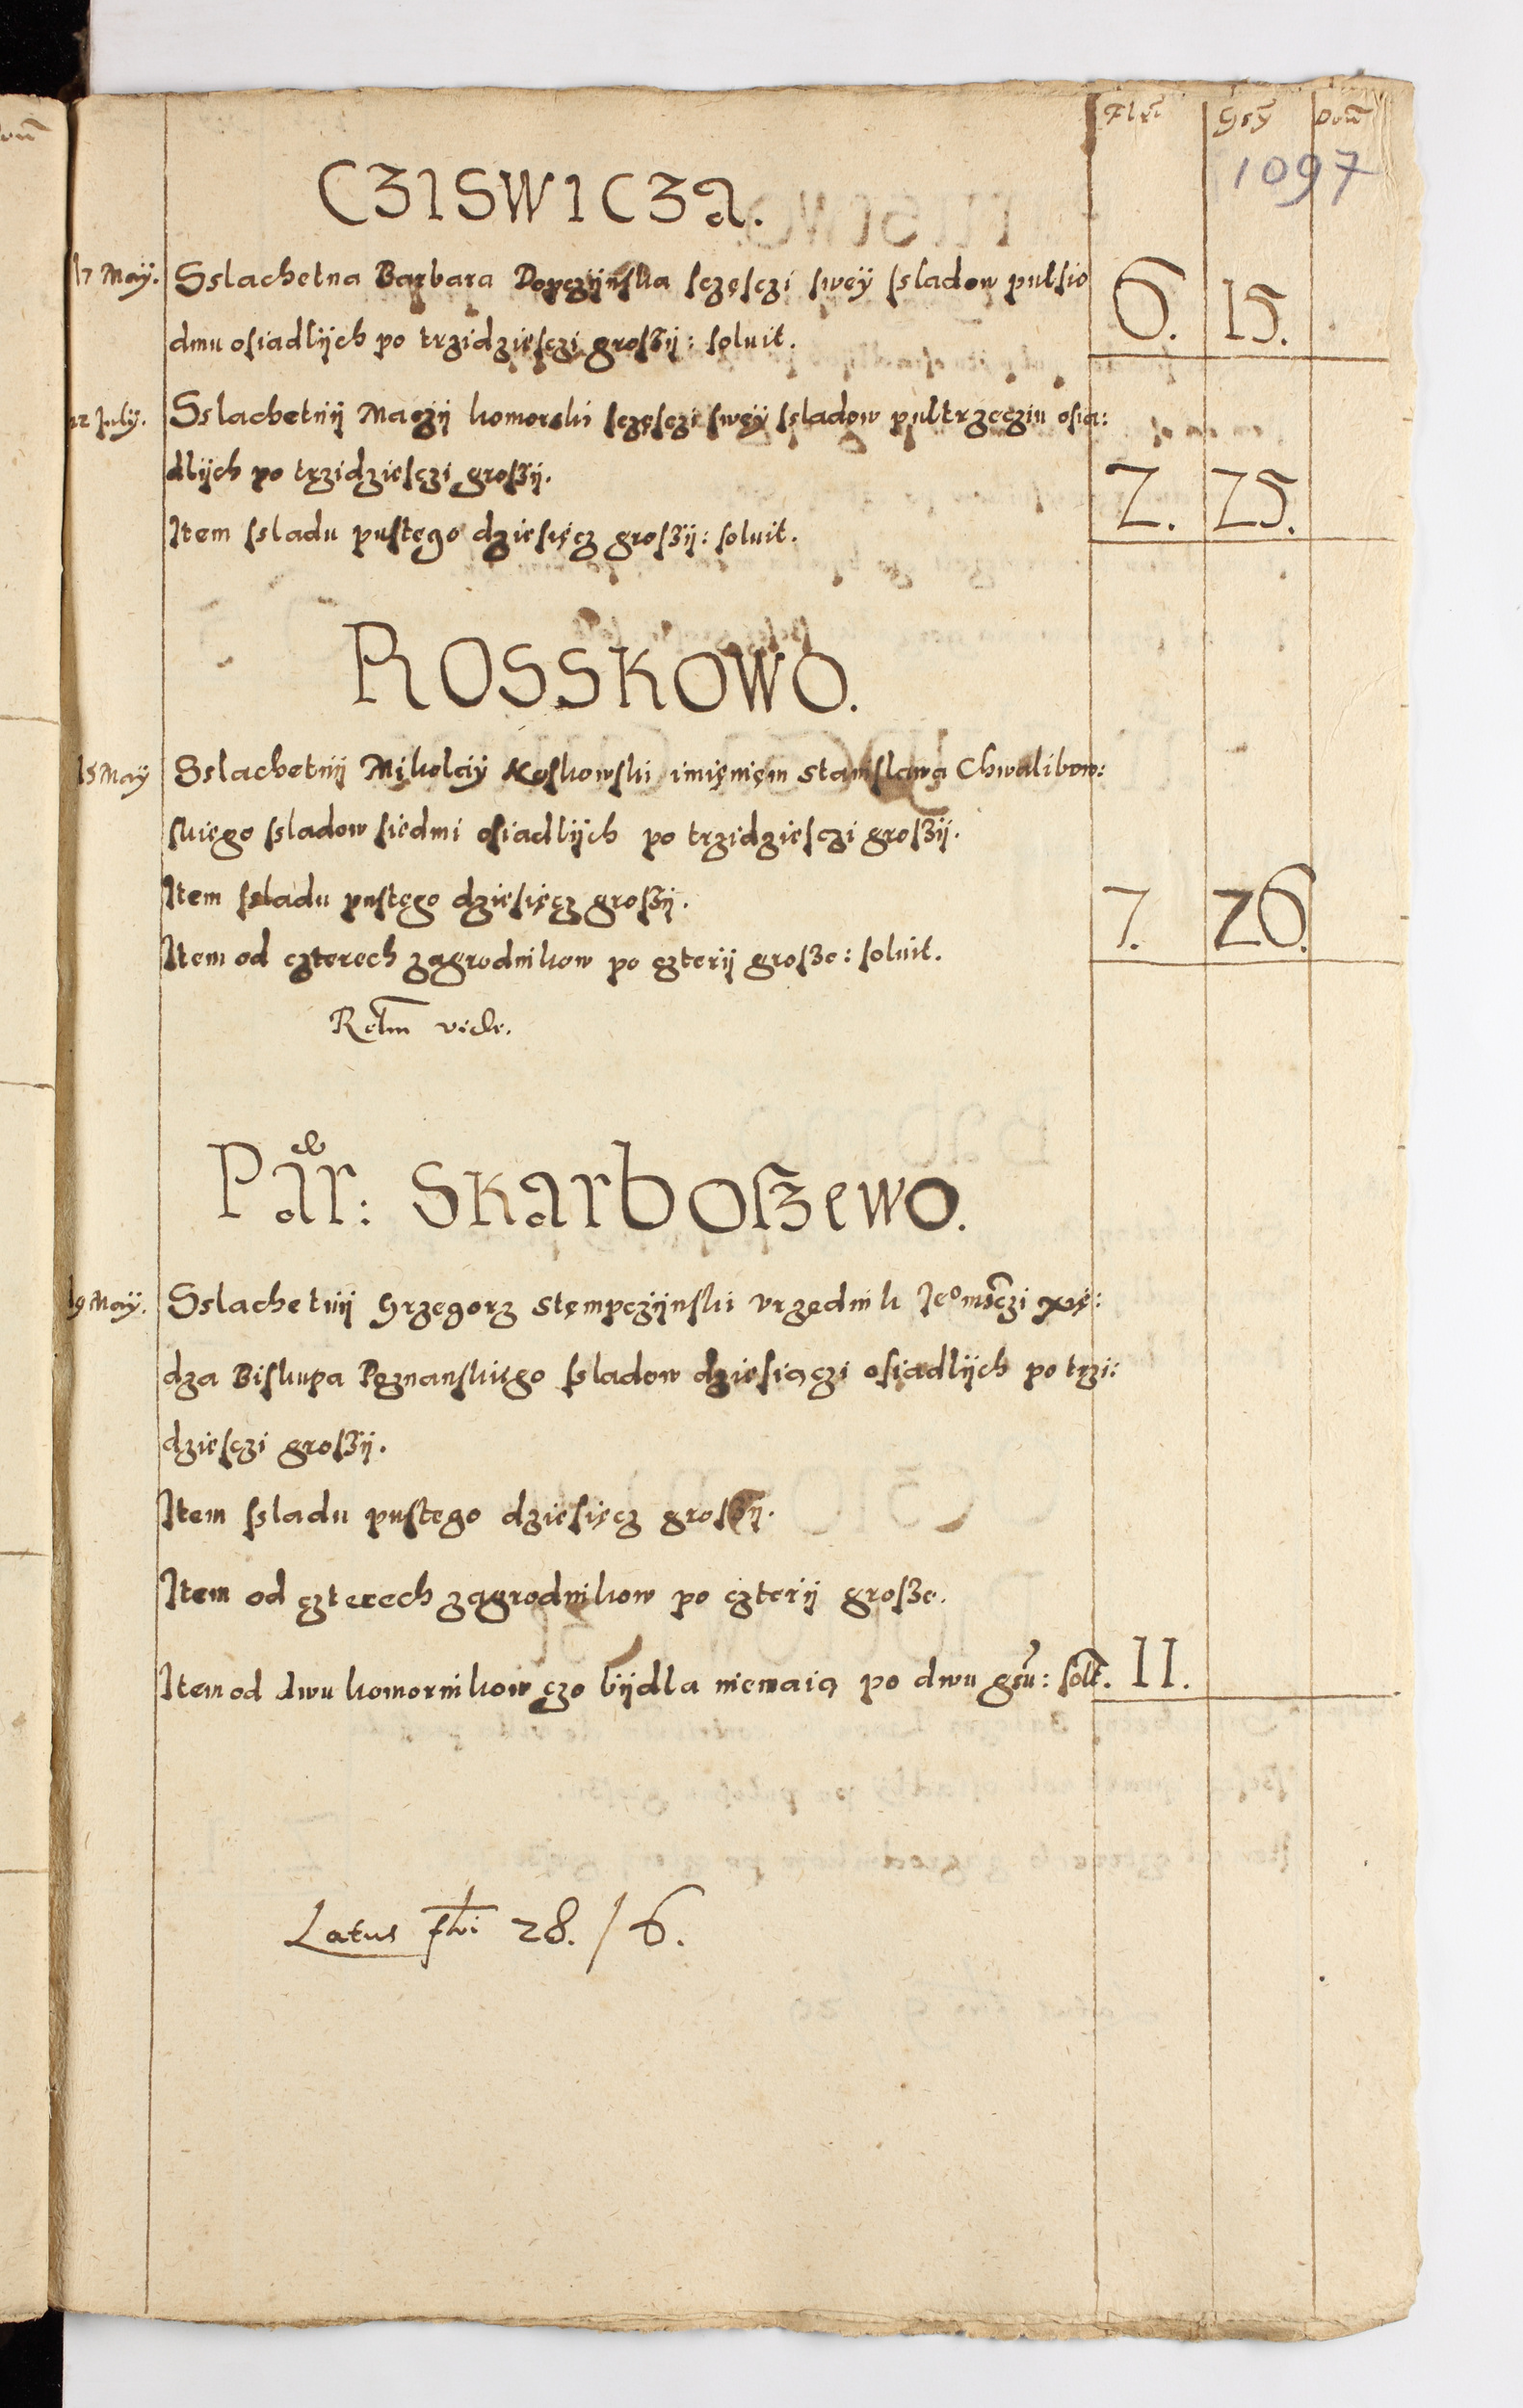 Flꝛ̃ Gꝛÿ Denã
1097
CZISWICZA.
17 Maÿ. Sslachetna Barbara Dopczÿnska sczęsczi sweÿ ssladow pulsio
dmu osiadlÿch po trzidziesczi großÿ: soluit. 6. 15.
22 Julÿ. Sslachetnÿ Maczÿ komorski sczęsczi sweÿ ssladow pultrzecziu osia:
dlÿch po trzidziesczi großÿ. 2. 25.
Item ssladu pustego dziesięcz großÿ: soluit.
ROSSKOWO.
15 Maÿ Sslachetnÿ Mikolaÿ Koskowski imięnięm Stanislawa Chwalibow:
skięgo ssladow siedmi osiadlÿch po trzidziesczi großÿ.
Item ssladu pustęgo dziesięcz großÿ. 7. 26.
Item od czterech zagrodnikow po czterÿ große: soluit.
Retm̃ vide.
Par: Skarboßewo.
19 Maÿ. Sslachetnÿ Grzegorz Stęmpczÿnski vrzędnik Jeomsczi xię:
dza Biskupa Poznanskięgo ssladow dziesiączi osiadlÿch po trzi:
dziesczi großÿ.
Item ssladu pustego dziesięcz großÿ.
Item od czterech zagrodnikow po czterÿ große.
Item od dwu komornikow czo bÿdla niemaią po dwu gru: solt. 11.
Latus fłi 28. / 6.